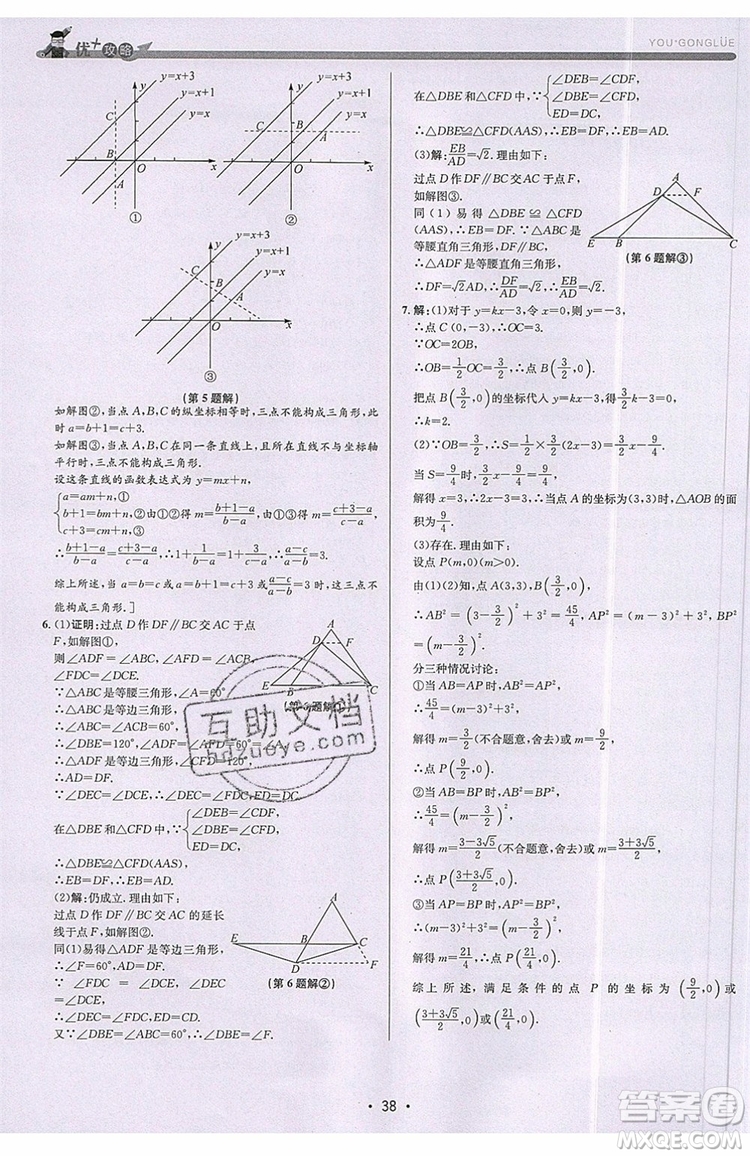 优+攻略
YOU·GONGLÜE
y y=x+3
y=x+1
y=x
C
B
A
O
x
①
y y=x+3
y=x+1
y=x
C
B
A
O
x
②
y y=x+3
y=x+1
y=x
C
B
A
O
x
③
(第5题解)
如解图②,当点A,B,C的纵坐标相等时,三点不能构成三角形,此
时a=b+1=c+3.
如解图③,当点A,B,C在同一条直线上,且所在直线与坐标轴
平行时,三点不能构成三角形.
设这条直线的函数表达式为y=mx+n,
{a=am+n,①
b+1=bm+n,② ②-①得m=(b+1-a)/(b-a),③-①得m=(c+3-a)/(c-a).
c+3=cm+n,③
∴(b+1-a)/(b-a)=(c+3-a)/(c-a),∴1+1/(b-a)=1+3/(c-a),∴(a-c)/(a-b)=3.
综上所述,当a=b+1=c+3或(a-c)/(a-b)=3时,以A,B,C为顶点不
能构成三角形.]
6. (1)证明:过点D作DF∥BC交AC于点
F,如解图①,
则∠ADF=∠ABC,∠AFD=∠ACB,
∠FDC=∠DCE.
∵△ABC是等腰三角形,∠A=60°,
∴△ABC是等边三角形,
∴∠ABC=∠ACB=60°,
∴∠DBE=120°,∠ADF=∠AFD=60°=∠A,
∴△ADF是等边三角形,∠CFD=120°.
∴AD=DF.
∵∠DEC=∠DCE,∴∠DEC=∠CDF.
在△DBE和△CFD中,∵{∠DEB=∠CDF,
∠DBE=∠CFD,
ED=CD,
∴△DBE≌△CFD(AAS).
∴EB=DF.∴EB=AD.
(2)解:仍成立.理由如下:
过点D作DF∥BC交AC的延长
线于点F,如解图②.
同(1)易得△ADF是等边三角形,
∴∠F=60°,AD=DF.
∵∠FDC+∠DCE=180°,∠DEC
=∠DCE.
∴∠FDC+∠DEC=180°.
∴∠CDF=∠DEB.
又∵∠DBE=∠ABC=60°,∴∠DBE=∠F.
A
D
F
E
B
C
A
E
B
C
D
F
(第6题解②)
在△DBE和△CDF中,∵{∠DEB=∠CDF,
∠DBE=∠F,
ED=DC,
∴△DBE≌△CDF(AAS),∴EB=DF.∴EB=AD.
(3)解:EB/AD=√2.理由如下:
过点D作DF∥BC交AC于点F,
如解图③.
同(1)易得△DBE≌△CFD
(AAS),∴EB=DF.∵△ABC是
等腰直角三角形,DF∥BC.
∴△ADF是等腰直角三角形,
∴DF=√2AD,∴DF/AD=√2,∴EB/AD=√2.
A
D
F
E
B
C
(第6题解③)
7. 解:(1)对于y=kx-3,令x=0,则y=-3,
∴点C(0,-3),∴OC=3.
∵OC=2OB,
∴OB=1/2 OC=3/2,∴点B(3/2,0).
把点B(3/2,0)的坐标代入y=kx-3,得3/2k-3=0,
∴k=2.
(2)∵OB=3/2,∴S=1/2×3/2(2x-3)=3/2x-9/4.
当S=9/4时,则3/2x-9/4=9/4,
解得x=3,∴2x-3=3,∴当点A的坐标为(3,3)时,△AOB的面
积为9/4.
(3)存在.理由如下:
设点P(m,0)(m>0).
由(1)(2)知,点A(3,3),B(3/2,0),
∴AB²=(3-3/2)²+3²=45/4,AP²=(m-3)²+3²,BP²
=(m-3/2)².
分三种情况讨论:
①当AP=BP时,AP²=BP²,
∴(m-3/2)²=(m-3)²+3²,
解得m=9/2,∴点P(9/2,0).
②当AB=BP时,AB²=BP²,
∴45/4=(m-3/2)²,
解得m=(3-3√5)/2(不合题意,舍去)或m=(3+3√5)/2,
∴点P((3+3√5)/2,0).
综上所述,满足条件的点P的坐标为(9/2,0)或
((3+3√5)/2,0)或(21/4,0).
互助文档
bdzuoye.com
· 38 ·
答案圈
MXQE.COM